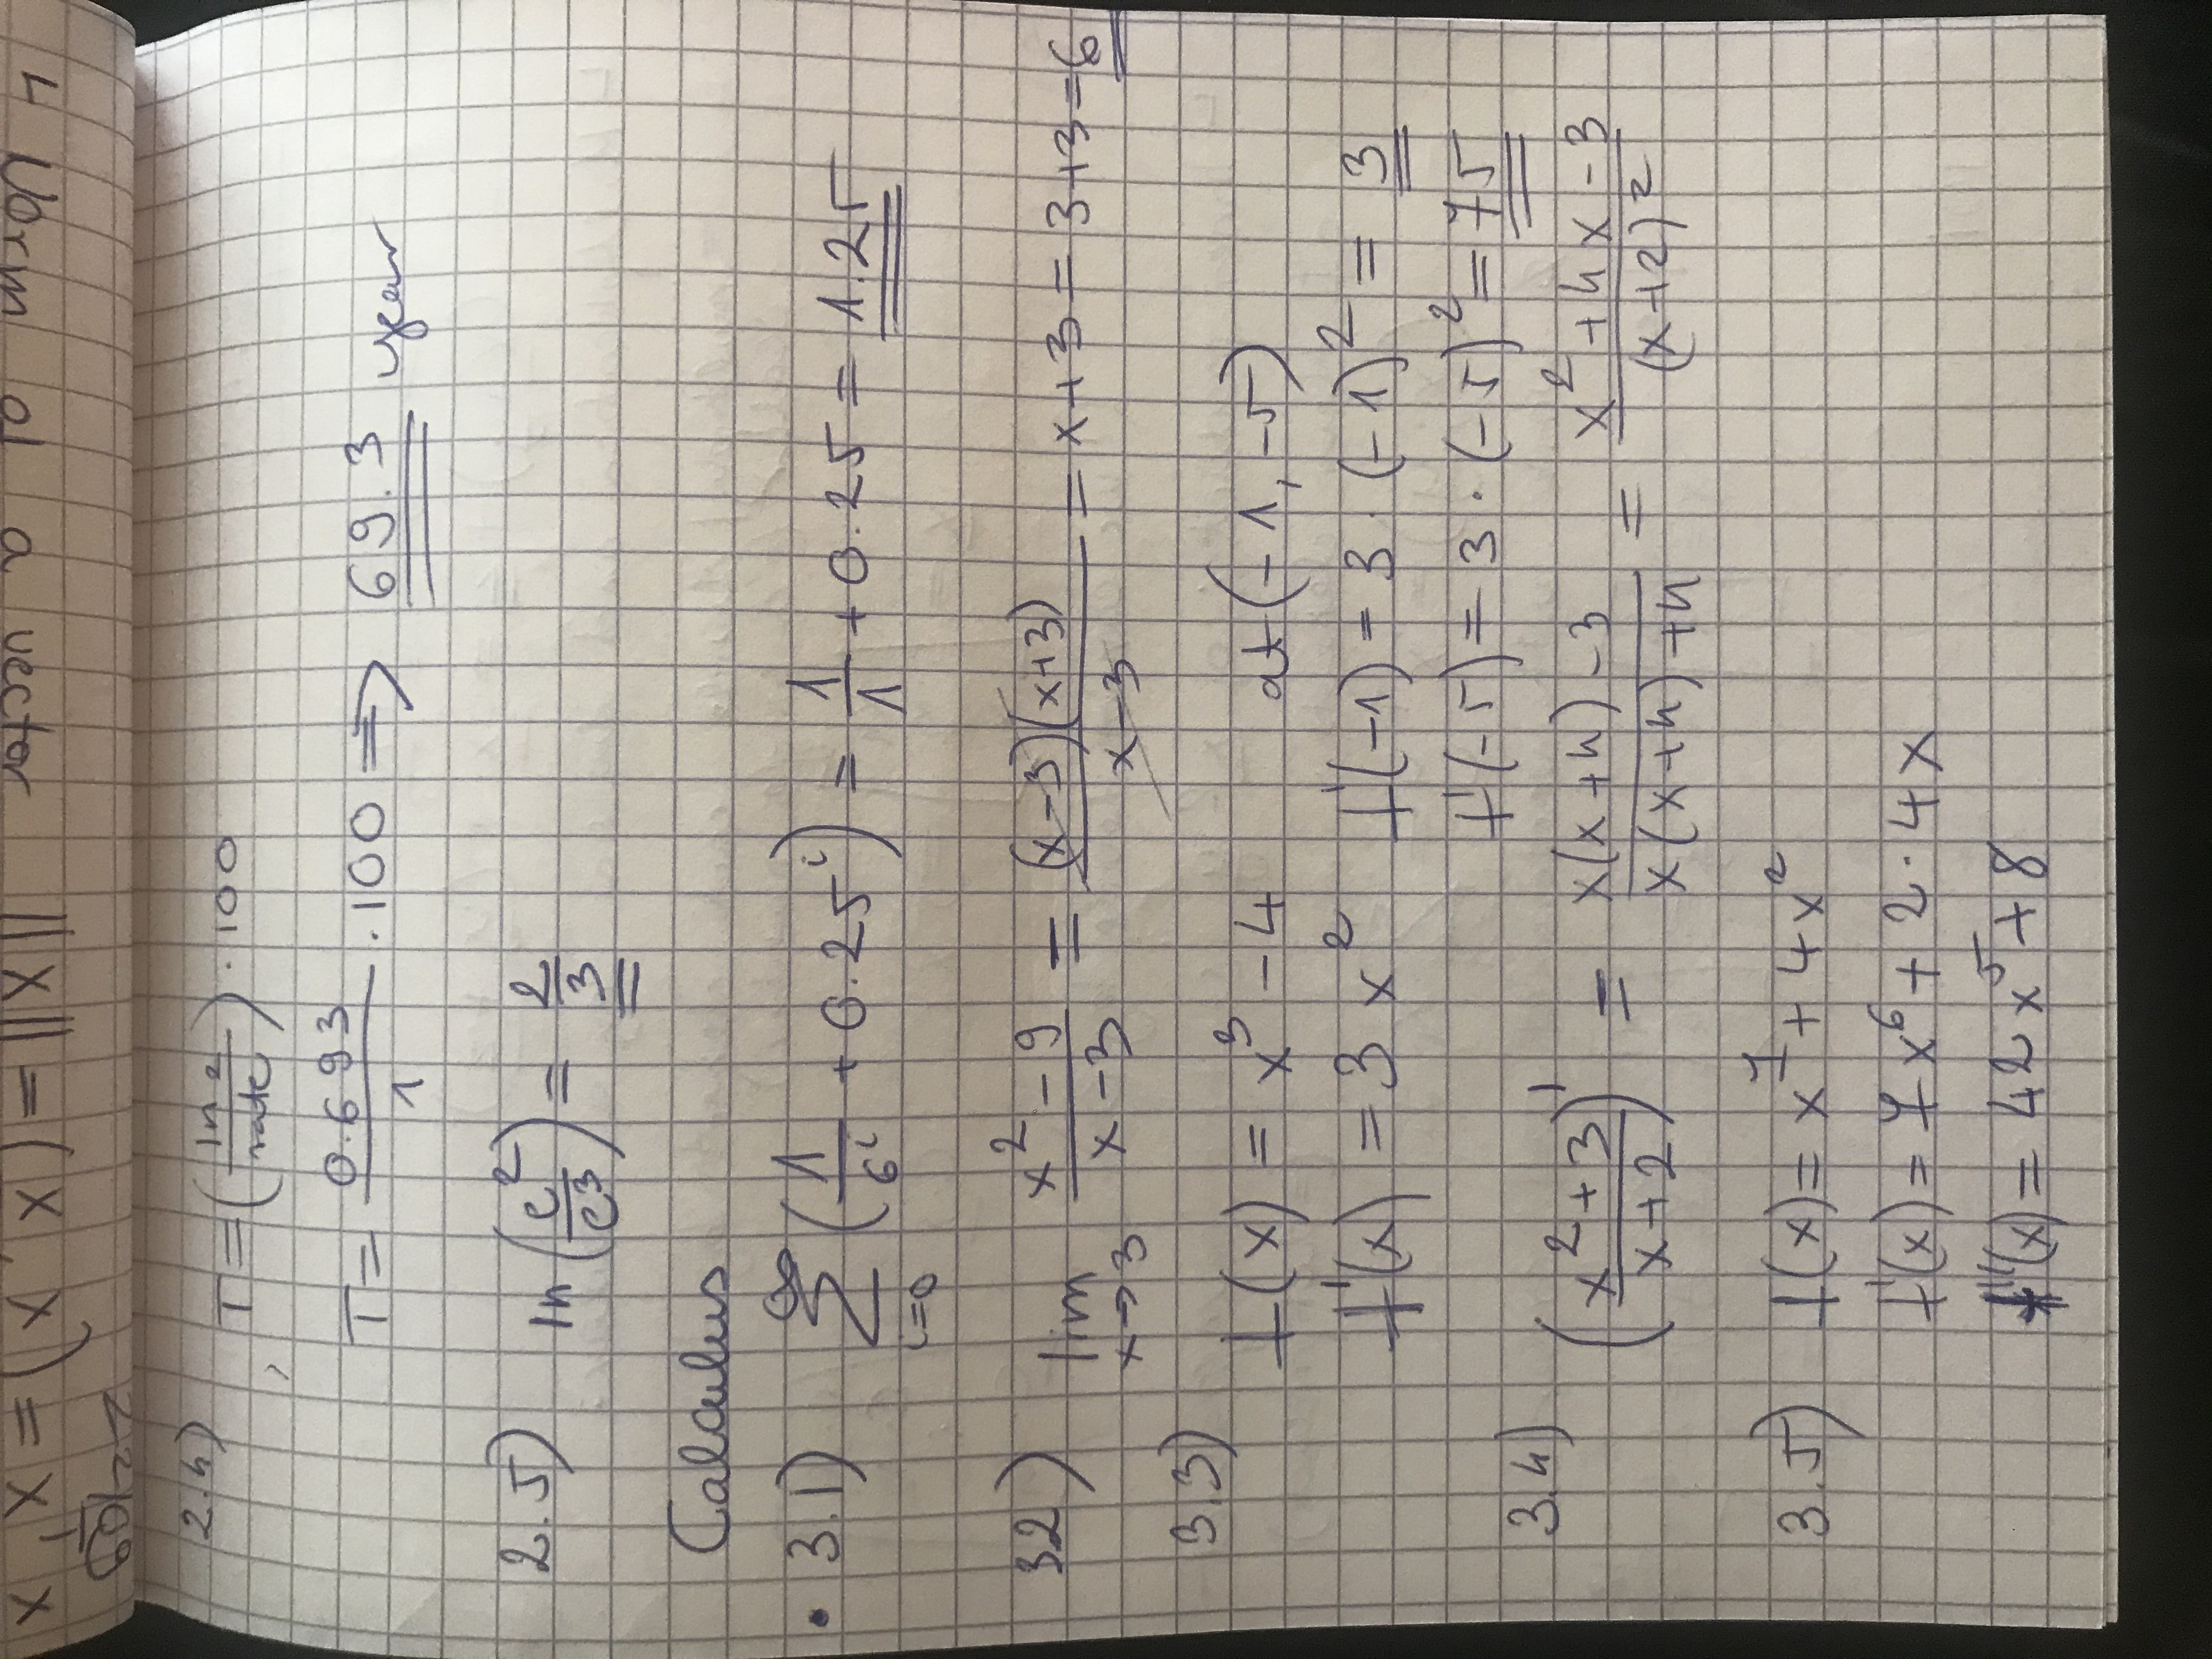 ∟ Norm of a vector ||X|| = (X, X) = X, X
2.4) T = (ln 2 / rate) · 100
T = 0.693 / 1 · 100 => 69.3 year
2.5) ln(e² / e³) = 2/3
Calculus
• 3.1) ∑_{i=0}^{∞} (1/6ⁱ + 0.25ⁱ) = 1/1 + 0.25 = 1.25
32) lim_{x→3} (x² - 9)/(x - 3) = (x - 3)(x + 3)/(x - 3) = x + 3 = 3 + 3 = 6
3.3)
f(x) = x³ - 4 at (-1, -5)
f'(x) = 3 x² f'(-1) = 3 · (-1)² = 3
f'(-5) = 3 · (-5)² = 75
3.4) ((x² + 3)/(x + 2))' = (x(x + 4) - 3)/(x(x + 4) + 4) = (x² + 4x - 3)/(x + 2)²
3.5) f(x) = x⁷ + 4x²
f'(x) = 7x⁶ + 2 · 4x
f''(x) = 42x⁵ + 8